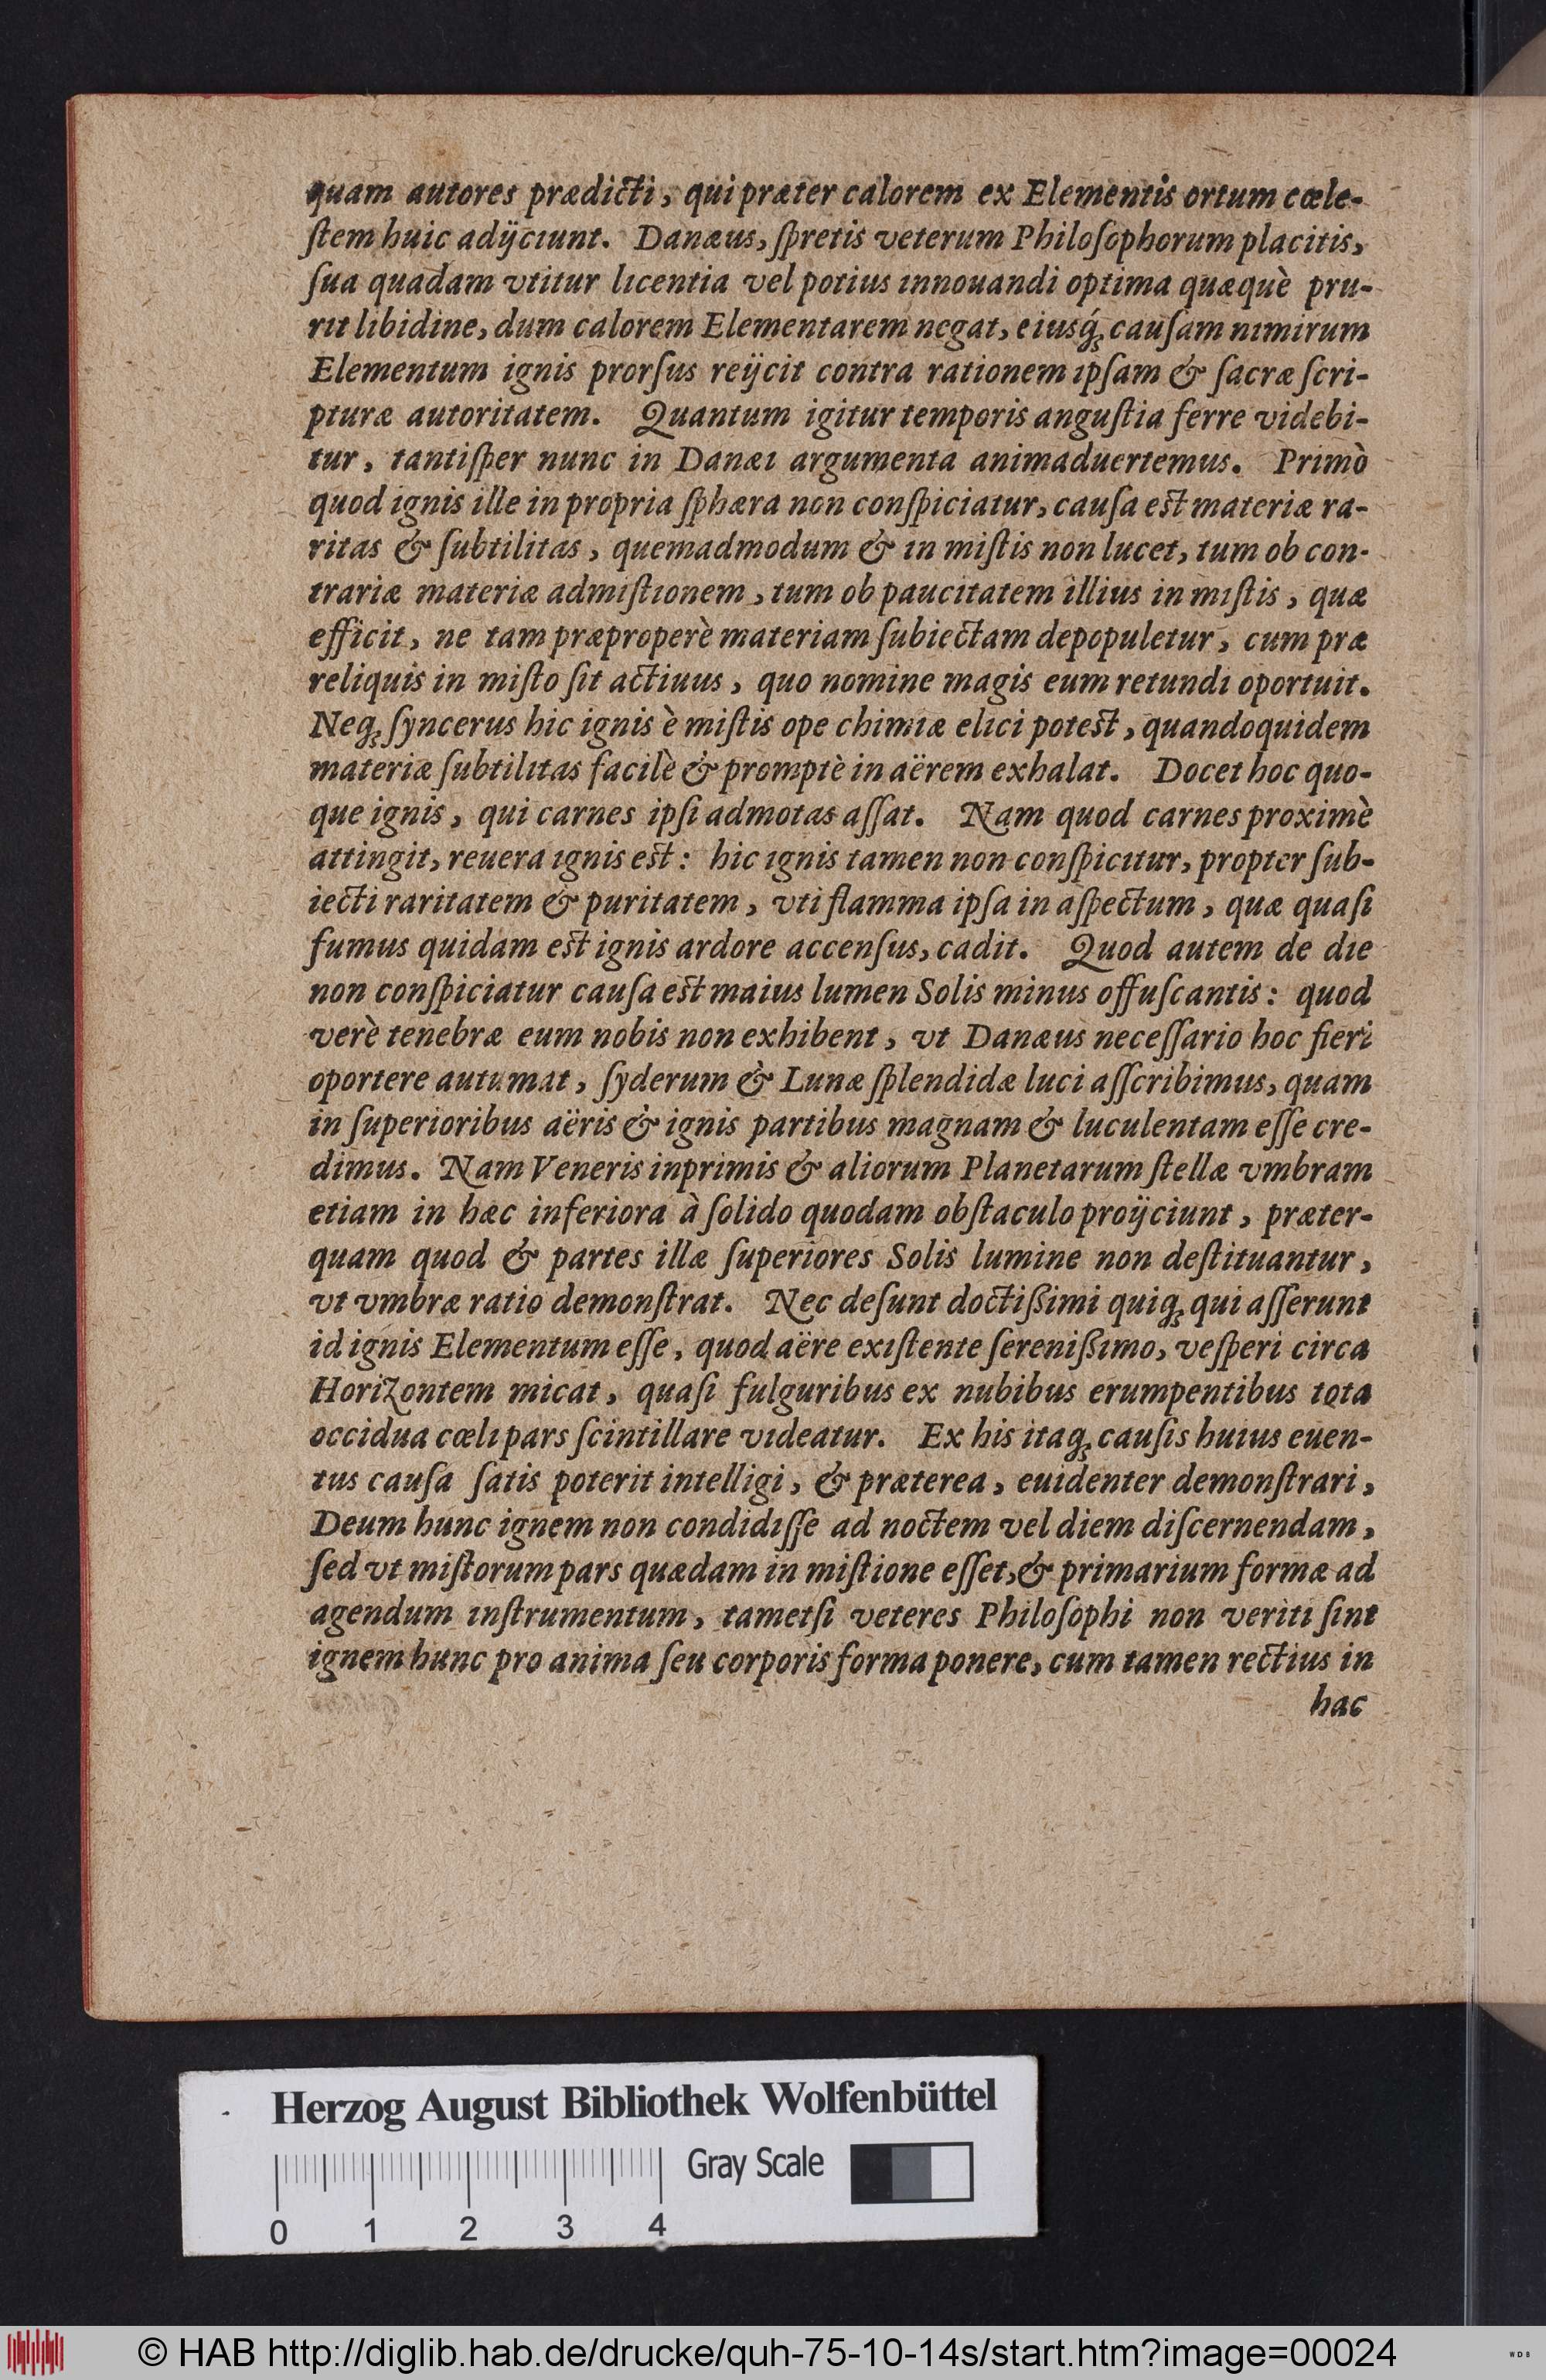 quam autores prædicti, qui præter calorem ex Elementis ortum cœle-
ſtem huic adijciunt. Danæus, ſpretis veterum Philoſophorum placitis,
ſua quadam vtitur licentia vel potius innouandi optima quæquè pru-
rit libidine, dum calorem Elementarem negat, eiusq́; cauſam nimirum
Elementum ignis prorſus reijcit contra rationem ipſam & ſacræ ſcri-
pturæ autoritatem. Quantum igitur temporis anguſtia ferre videbi-
tur, tantiſper nunc in Danæi argumenta animaduertemus. Primò
quod ignis ille in propria ſphæra non conſpiciatur, cauſa eſt materiæ ra-
ritas & ſubtilitas, quemadmodum & in miſtis non lucet, tum ob con-
trariæ materiæ admiſtionem, tum ob paucitatem illius in miſtis, quæ
efficit, ne tam præproperè materiam ſubiectam depopuletur, cum præ
reliquis in miſto ſit actiuus, quo nomine magis eum retundi oportuit.
Neq; ſyncerus hic ignis è miſtis ope chimiæ elici poteſt, quandoquidem
materiæ ſubtilitas facilè & promptè in aërem exhalat. Docet hoc quo-
que ignis, qui carnes ipſi admotas aſſat. Nam quod carnes proximè
attingit, reuera ignis eſt: hic ignis tamen non conſpicitur, propter ſub-
iecti raritatem & puritatem, vti flamma ipſa in aſpectum, quæ quaſi
fumus quidam eſt ignis ardore accenſus, cadit. Quod autem de die
non conſpiciatur cauſa eſt maius lumen Solis minus offuſcantis: quod
verè tenebræ eum nobis non exhibent, vt Danæus neceſſario hoc fieri
oportere autumat, ſyderum & Lunæ ſplendidæ luci aſſcribimus, quam
in ſuperioribus aëris & ignis partibus magnam & luculentam eſſe cre-
dimus. Nam Veneris inprimis & aliorum Planetarum ſtellæ vmbram
etiam in hæc inferiora à ſolido quodam obſtaculo proijciunt, præter-
quam quod & partes illæ ſuperiores Solis lumine non deſtituantur,
vt vmbræ ratio demonſtrat. Nec deſunt doctißimi quiq; qui aſſerunt
id ignis Elementum eſſe, quod aëre exiſtente ſerenißimo, veſperi circa
Horizontem micat, quaſi fulguribus ex nubibus erumpentibus tota
occidua cœli pars ſcintillare videatur. Ex his itaq; cauſis huius euen-
tus cauſa ſatis poterit intelligi, & præterea, euidenter demonſtrari,
Deum hunc ignem non condidiſſe ad noctem vel diem diſcernendam,
ſed vt miſtorum pars quædam in miſtione eſſet, & primarium formæ ad
agendum inſtrumentum, tametſi veteres Philoſophi non veriti ſint
ignem hunc pro anima ſeu corporis forma ponere, cum tamen rectius in
hac
Herzog August Bibliothek Wolfenbüttel
Gray Scale
0 1 2 3 4
© HAB http://diglib.hab.de/drucke/quh-75-10-14s/start.htm?image=00024